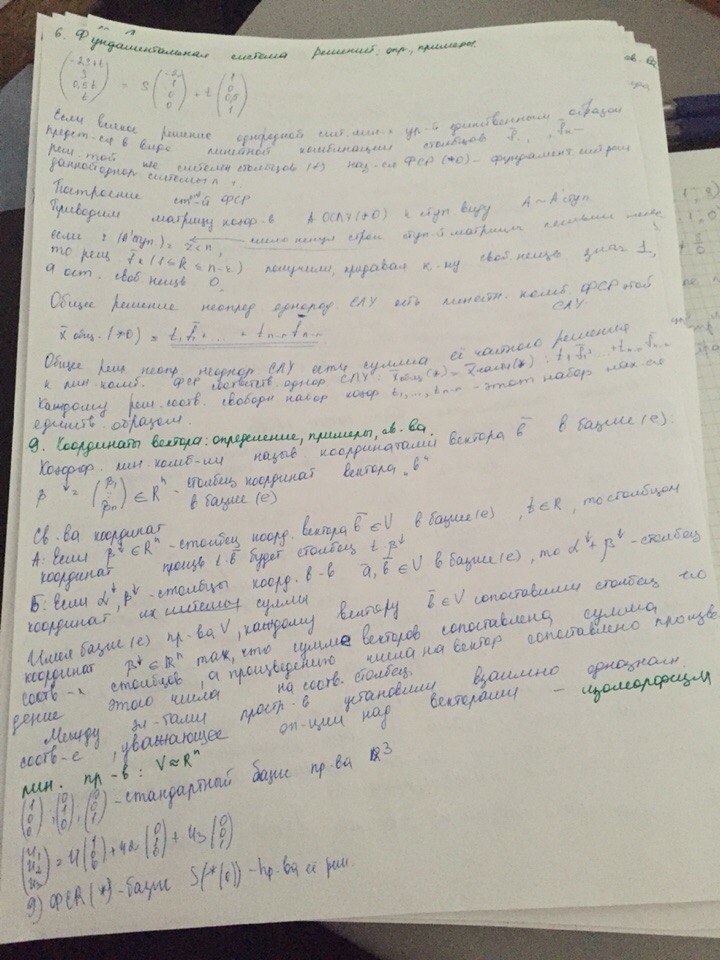 6. Фундаментальная система решений: опр, примеры.
(-2s+t, s, 0,5t, t) = s (-2, 1, 0, 0) + t (1, 0, 0,5, 1)
Если всякое решение однородной сист. лин-х ур-й единственным образом
предст-ся в виде линейной комбинации столбцов
реш. той же системы столбцов (*) наз-ся ФСР (*0) - фундамент. сист реш
данной однор системы
Построение ФСР
Приводим матрицу коэф-в A ОСЛУ(*0) к ступ виду A ~ A ступ
если r(A ступ) = r < n, число ненул строк ступ-й матрицы меньше
то реш X̄k (1 ≤ k ≤ n-r) получим, придавая к-му своб неизв знач 1,
а ост. своб неизв 0.
Общее решение неопред однород СЛУ есть линейн. комб. ФСР этой
СЛУ
X̄ общ. (*0) = t₁f̄₁ + ... + tn-r f̄n-r
Общее реш неопр неоднор СЛУ есть сумма её частного решения
и лин комб. ФСР соответств. однор СЛУ: X̄общ(*) = X̄частн(*) + t₁f̄₁ + ... + tn-r f̄n-r
Каждому реш. соотв. свободн набор коэф t₁,..., tn-r - этот набор нах-ся
единств. образом.
9. Координаты вектора: определение, примеры, св-ва.
Коэфф. лин. комб-ии назыв координатами вектора b̄ в базисе (e).
β↓ = (β₁ ⋮ βn) ∈ Rⁿ - столбец координат вектора "b"
в базисе (e)
Св-ва координат
А: Если β↓ ∈ Rⁿ - столбец коорд. вектора b̄ ∈ V в базисе (e), t ∈ R, то столбцом
координат произв t·b̄ будет столбец tβ↓
Б: Если α↓, β↓ - столбцы коорд. в-в ā, b̄ ∈ V в базисе (e), то α↓ + β↓ - столбец
координат их суммы
Имея базис (e) пр-ва V, каждому вектору b̄ ∈ V сопоставим столбец его
координат β↓ ∈ Rⁿ так, что сумме векторов сопоставлена сумма
соотв-х столбцов, а произведению числа на вектор сопоставлено произве-
дение этого числа на соотв. столбец.
Между эл-тами простр-в установили взаимно однозначн.
соотв-е, уважающее оп-ции над векторами - изоморфизм
лин. пр-в: V ≈ Rⁿ
(1 0 0), (0 1 0), (0 0 1) - стандартный базис пр-ва R³
(u₁ u₂ u₃) = u₁ (1 0 0) + u₂ (0 1 0) + u₃ (0 0 1)
9) ФСР(*) - базис S(*(0)) - пр-ва её реш.